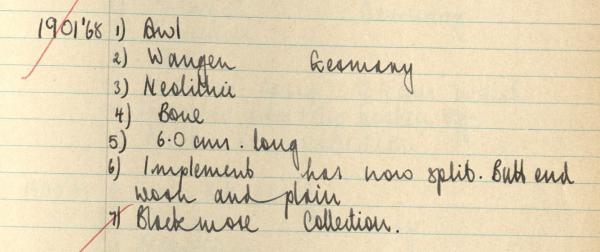 1901'68 1) Awl
2) Wangen Germany
3) Neolithic
4) Bone
5) 6.0 cms. long
6) Implement has now split. Butt end
worn and plain
7) Blackmore Collection.